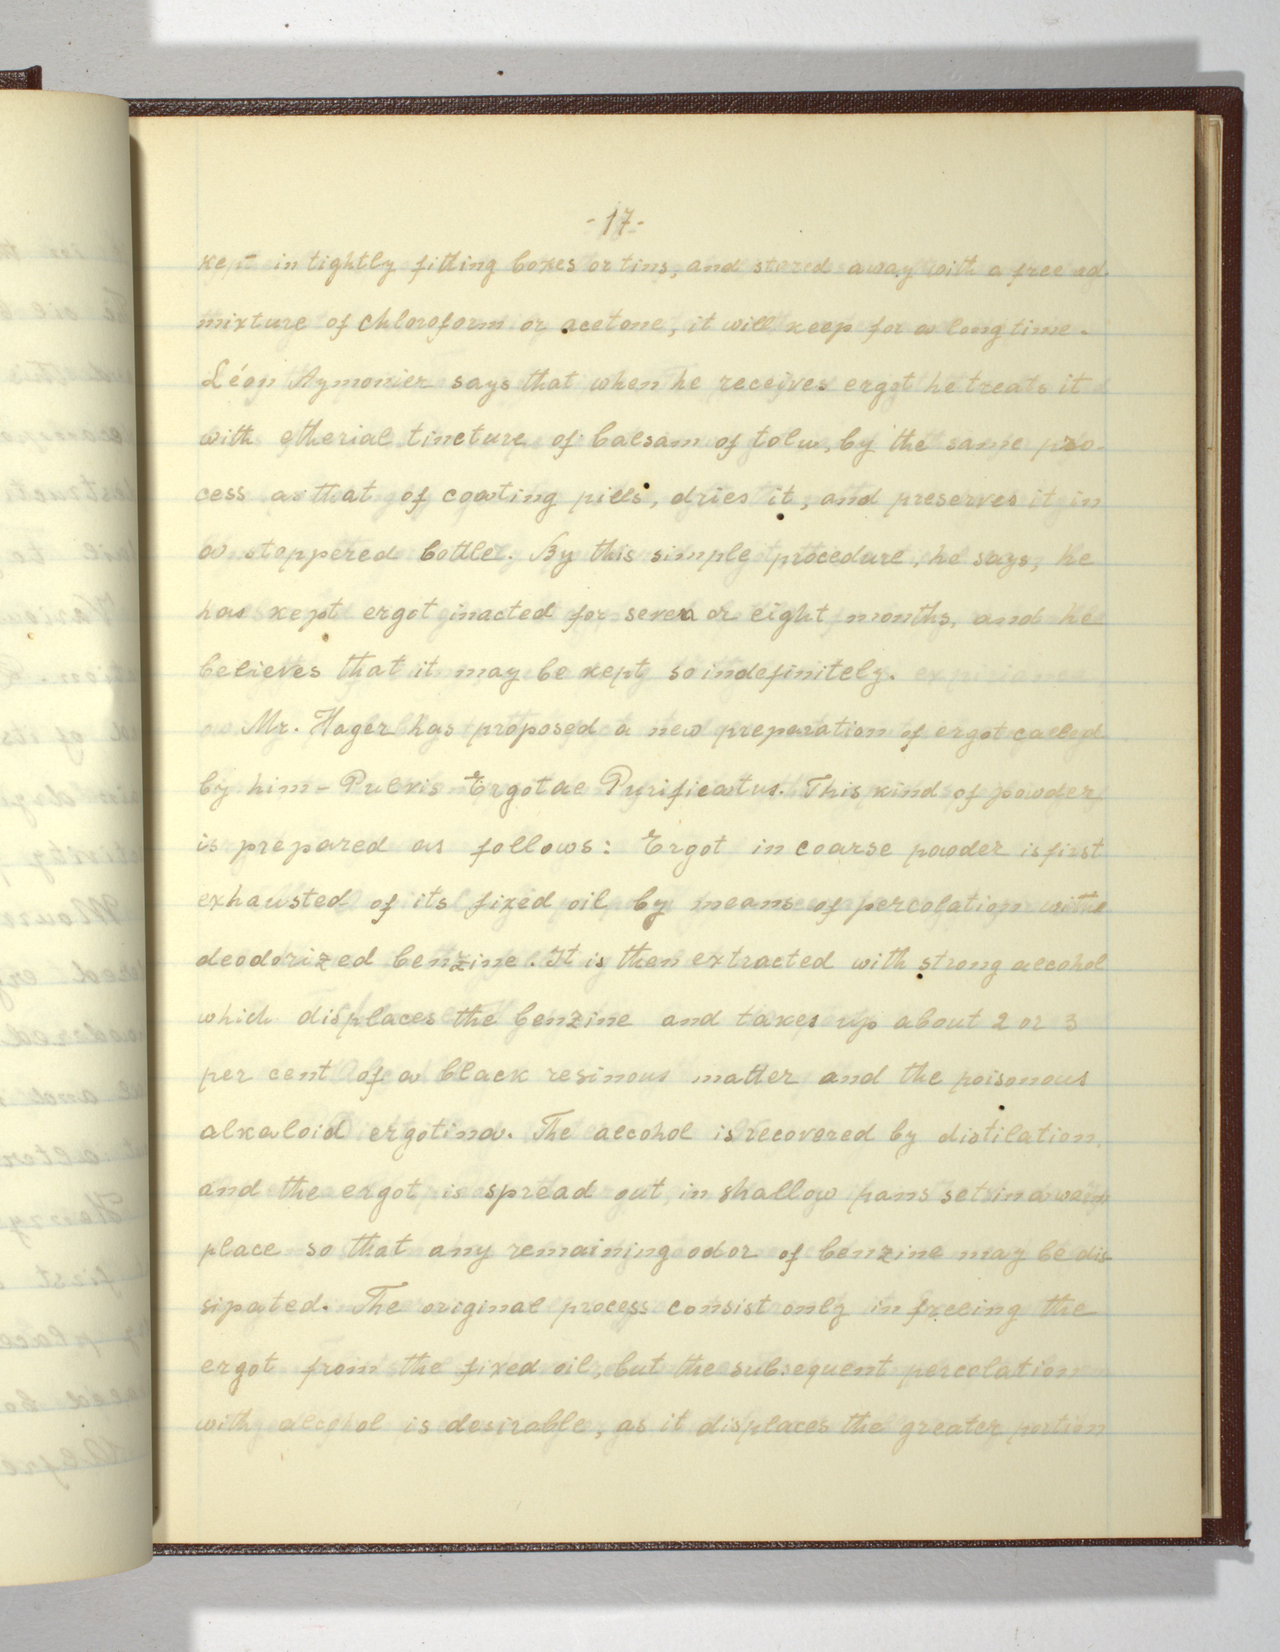 -17-
kept in tightly fitting boxes or tins, and stored away with a free ad
mixture of chloroform or acetone, it will keep for a long time.
Léon Aymonier says that when he receives ergot he treats it
with etherial tincture of balsam of tolu, by the same pro-
cess as that of coating pills, dries it, and preserves it in
a stoppered bottle. By this simple procedure, he says, he
has kept ergot inacted for seven or eight months, and he
believes that it may be kept so indefinitely.
Mr. Hager has proposed a new preparation of ergot called
by him - Pulvis Ergotae Purificatus. This kind of powder
is prepared as follows: Ergot in coarse powder is first
exhausted of its fixed oil by means of percolation with
deodorized benzine. It is then extracted with strong alcohol
which displaces the benzine and takes up about 2 or 3
per cent of a black resinous matter and the poisonous
alkaloid ergotina. The alcohol is recovered by distilation,
and the ergot is spread out in shallow pans set in a warm
place so that any remaining odor of benzine may be dis-
sipated. The original process consist only in freeing the
ergot from the fixed oil, but the subsequent percolation
with alcohol is desirable, as it displaces the greater portion